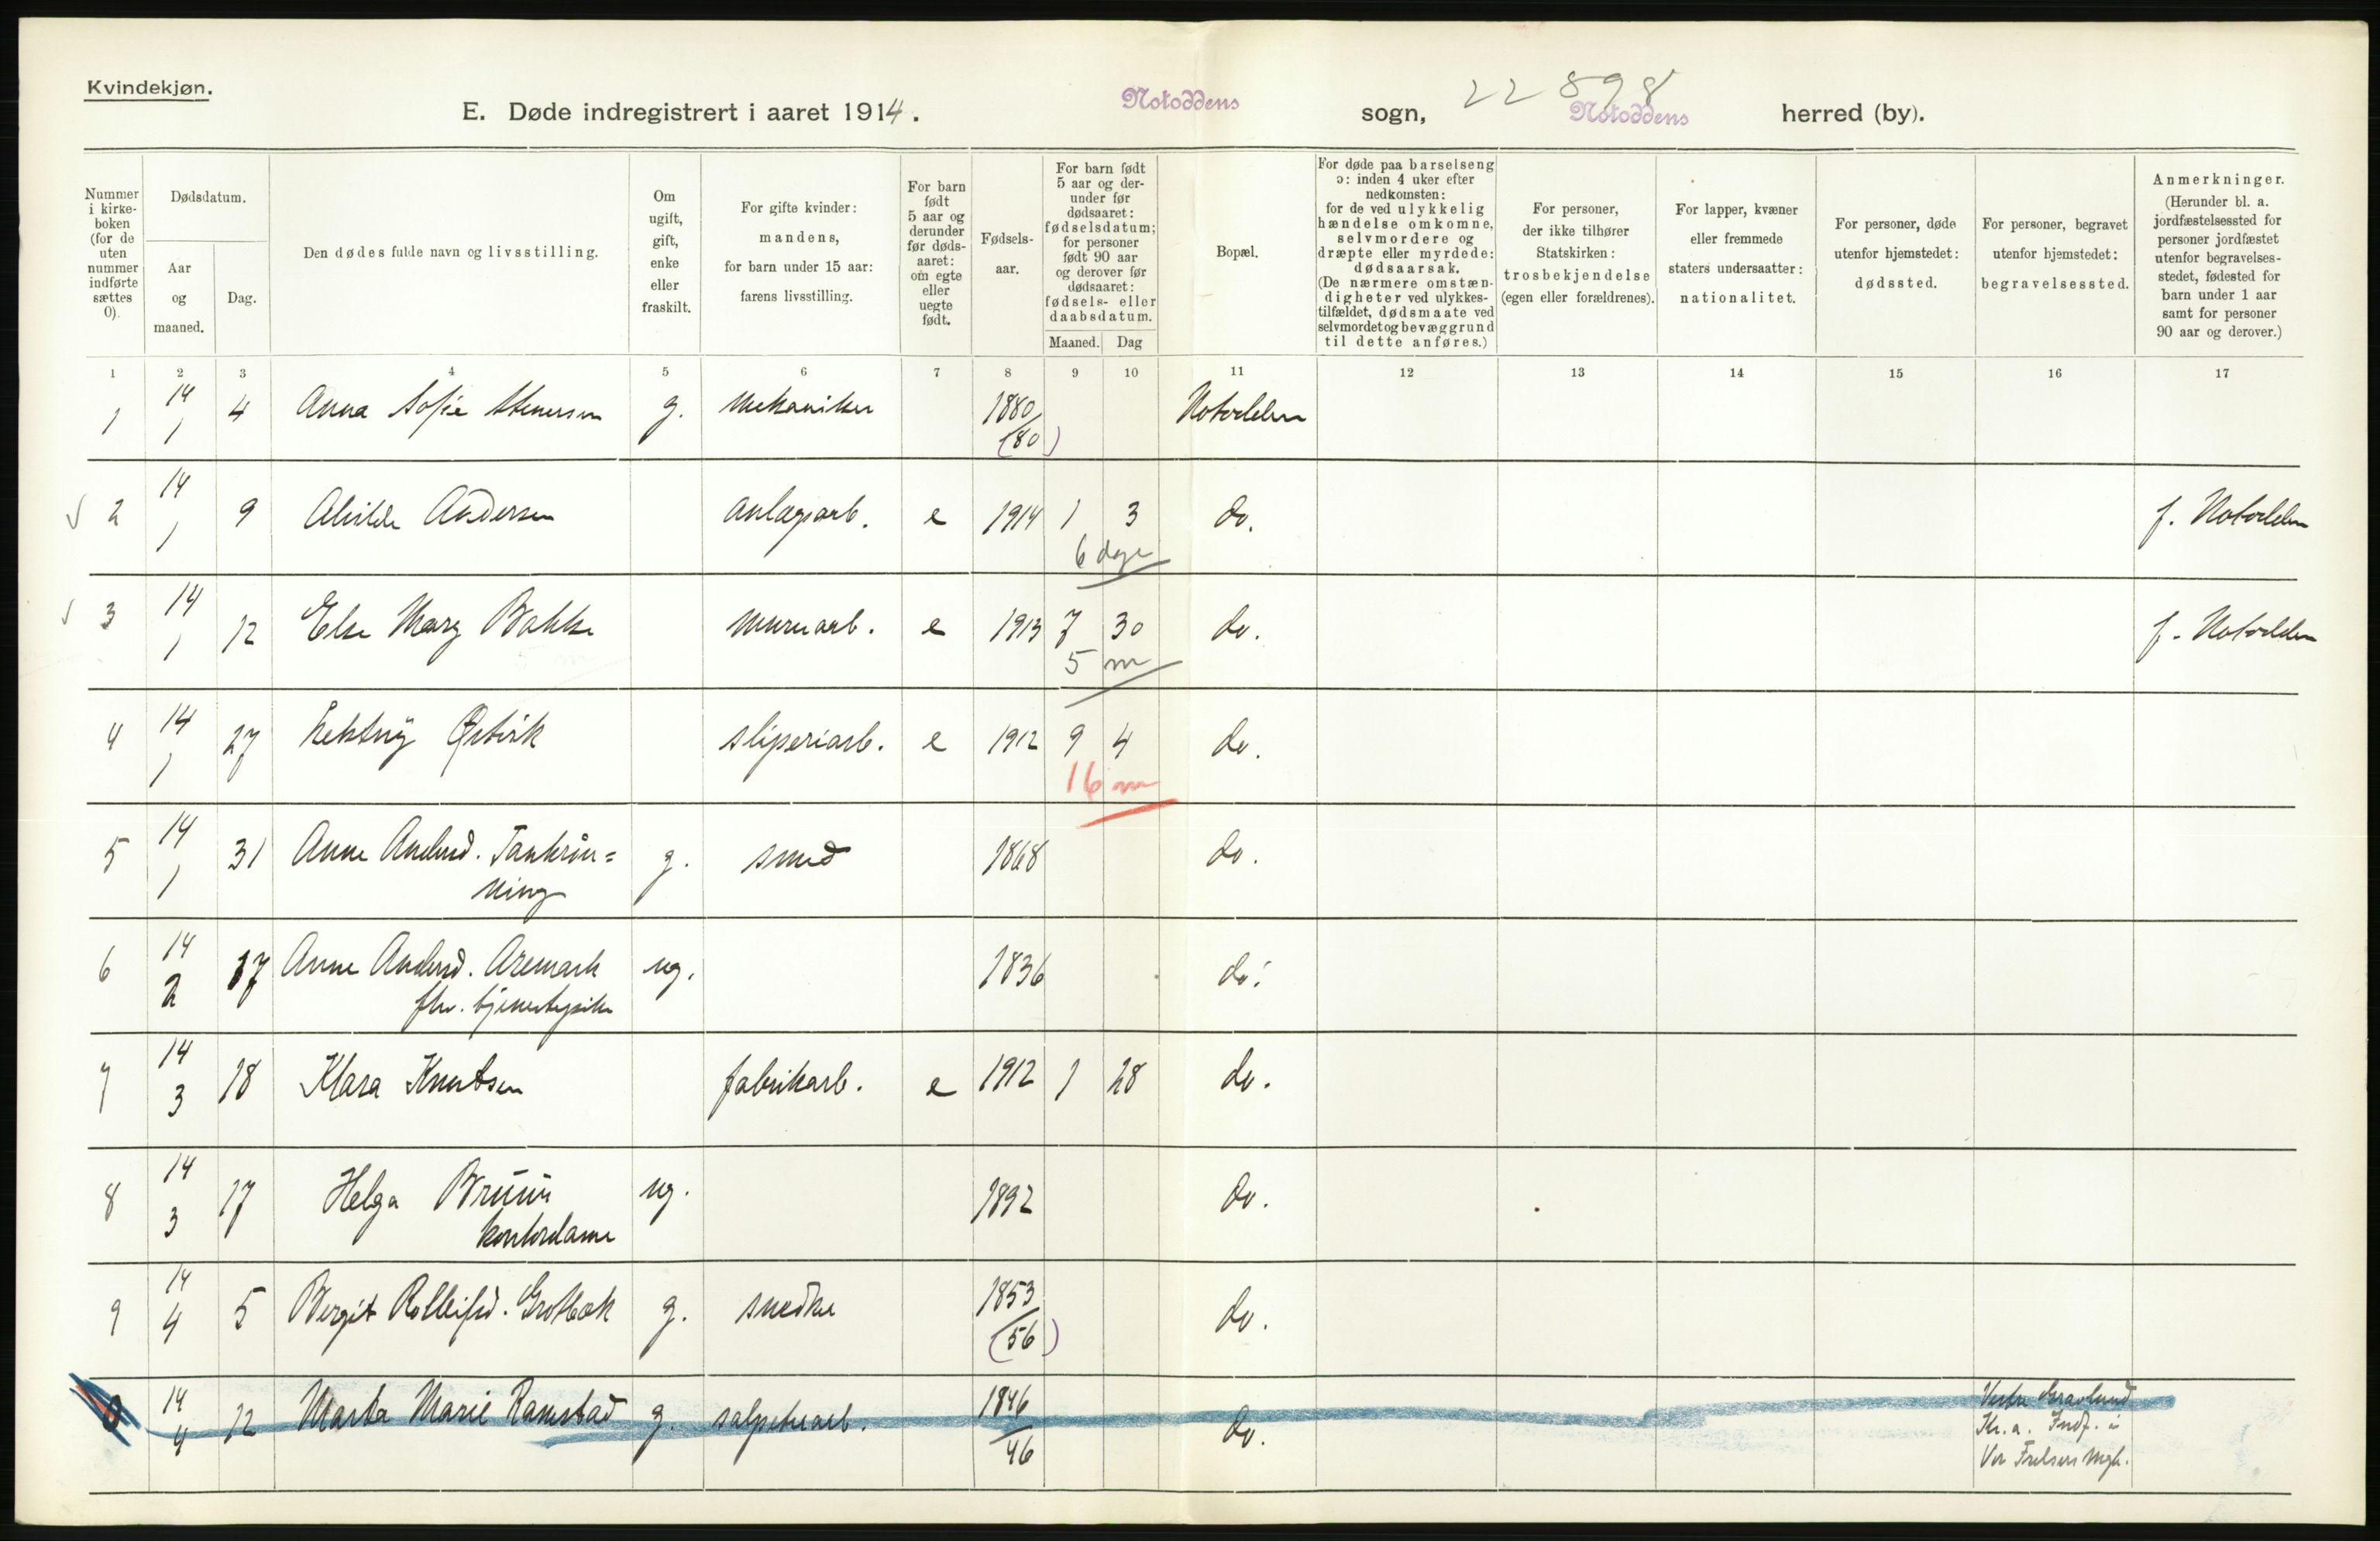 Kvindekjøn.
E. Døde indregistrert i aaret 1914. Notoddens sogn, 22898 Notoddens herred (by).
Nummer i kirke-boken (for de uten nummer indførte sættes 0).
Dødsdatum.
Aar og maaned.
Dag.
Den dødes fulde navn og livsstilling.
Om ugift, gift, enke eller fraskilt.
For gifte kvinder: mandens, for barn under 15 aar: farens livsstilling.
For barn født 5 aar og derunder før døds-aaret: om egte eller uegte født.
Fødsels-aar.
For barn født 5 aar og der-under før dødsaaret: fødselsdatum; for personer født 90 aar og derover før dødsaaret: fødsels- eller daabsdatum.
Maaned. Dag
Bopæl.
For døde paa barselseng ɔ: inden 4 uker efter nedkomsten: for de ved ulykkelig hændelse omkomne, selvmordere og dræpte eller myrdede: dødsaarsak. (De nærmere omstæn-digheter ved ulykkes-tilfældet, dødsmaate ved selvmordet og bevæggrund til dette anføres.)
For personer, der ikke tilhører Statskirken: trosbekjendelse (egen eller forældrenes).
For lapper, kvæner eller fremmede staters undersaatter: nationalitet.
For personer, døde utenfor hjemstedet: dødssted.
For personer, begravet utenfor hjemstedet: begravelsessted.
Anmerkninger. (Herunder bl. a. jordfæstelsessted for personer jordfæstet utenfor begravelses-stedet, fødested for barn under 1 aar samt for personer 90 aar og derover.)
1 2 3 4 5 6 7 8 9 10 11 12 13 14 15 16 17
1 14 1 4 Anna Sofie Stenersen g. mekaniker 1880 (80) Notodden
2 14 1 9 Alvilde Andersen anlægsarb. e 1914 1 3 do. f. Notodden
6 dage
3 14 1 12 Else Mary Bakke murerarb. e 1913 7 30 do. f. Notodden
5 m
4 14 1 27 Østvik sliperiarb. e 1912 9 4 do.
16 m
5 14 1 31 Anne Andersd. g. smed 1868 do.
6 14 2 17 Anne Andersd. Aremark ug. 1836 do.
fhv. tjenestepike
7 14 3 18 Klara Knutsen fabrikarb. e 1912 1 28 do.
8 14 3 17 Helga Bruun ug. 1892 do.
kontordame
9 14 4 5 Bergit Rolleifsd. Grotbæk g. snedker 1853 (56) do.
0 14 4 12 Marta Marie Ramstad g. salpeterarb. 1846 46 do. Vestre Gravlund
Kr.a. Indf. i
Vor Frelsers mgh.